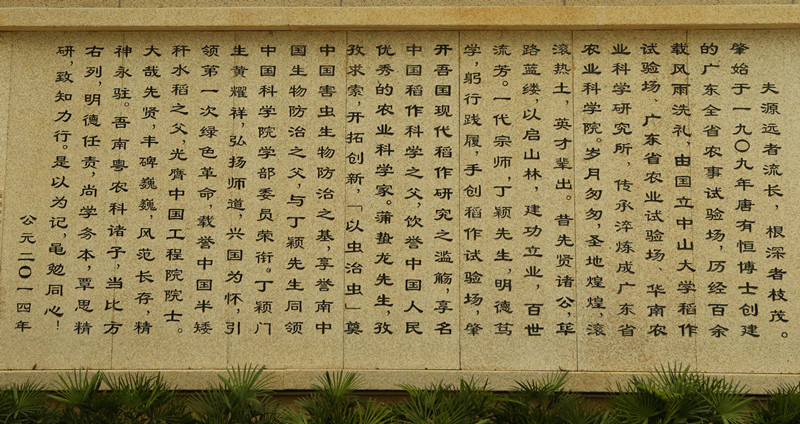 夫源远者流长，根深者枝茂。
肇始于一九〇九年唐有恒博士创建
的广东全省农事试验场，历经百余
载风雨洗礼，由国立中山大学稻作
试验场、广东省农业试验场、华南农
业科学研究所，传承淬炼成广东省
农业科学院。岁月匆匆，圣地煌煌，滚
滚热土，英才辈出。昔先贤诸公，筚
路蓝缕，以启山林，建功立业，百世
流芳。一代宗师，丁颖先生，明德笃
学，躬行践履，手创稻作试验场，肇
开吾国现代稻作研究之滥觞，享名
中国稻作科学之父，饮誉中国人民
优秀的农业科学家。蒲蛰龙先生，孜
孜求索，开拓创新，「以虫治虫」奠
中国害虫生物防治之基，享誉南中
国生物防治之父，与丁颖先生同领
中国科学院学部委员荣衔。丁颖门
生黄耀祥，弘扬师道，兴国为怀，引
领第一次绿色革命，载誉中国半矮
秆水稻之父，光膺中国工程院院士。
大哉先贤，丰碑巍巍，风范长存，精
神永驻。吾南粤农科诸子，当比方
右列，明德任责，尚学务本，覃思精
研，致知力行。是以为记，黾勉同心！
公元二〇一四年